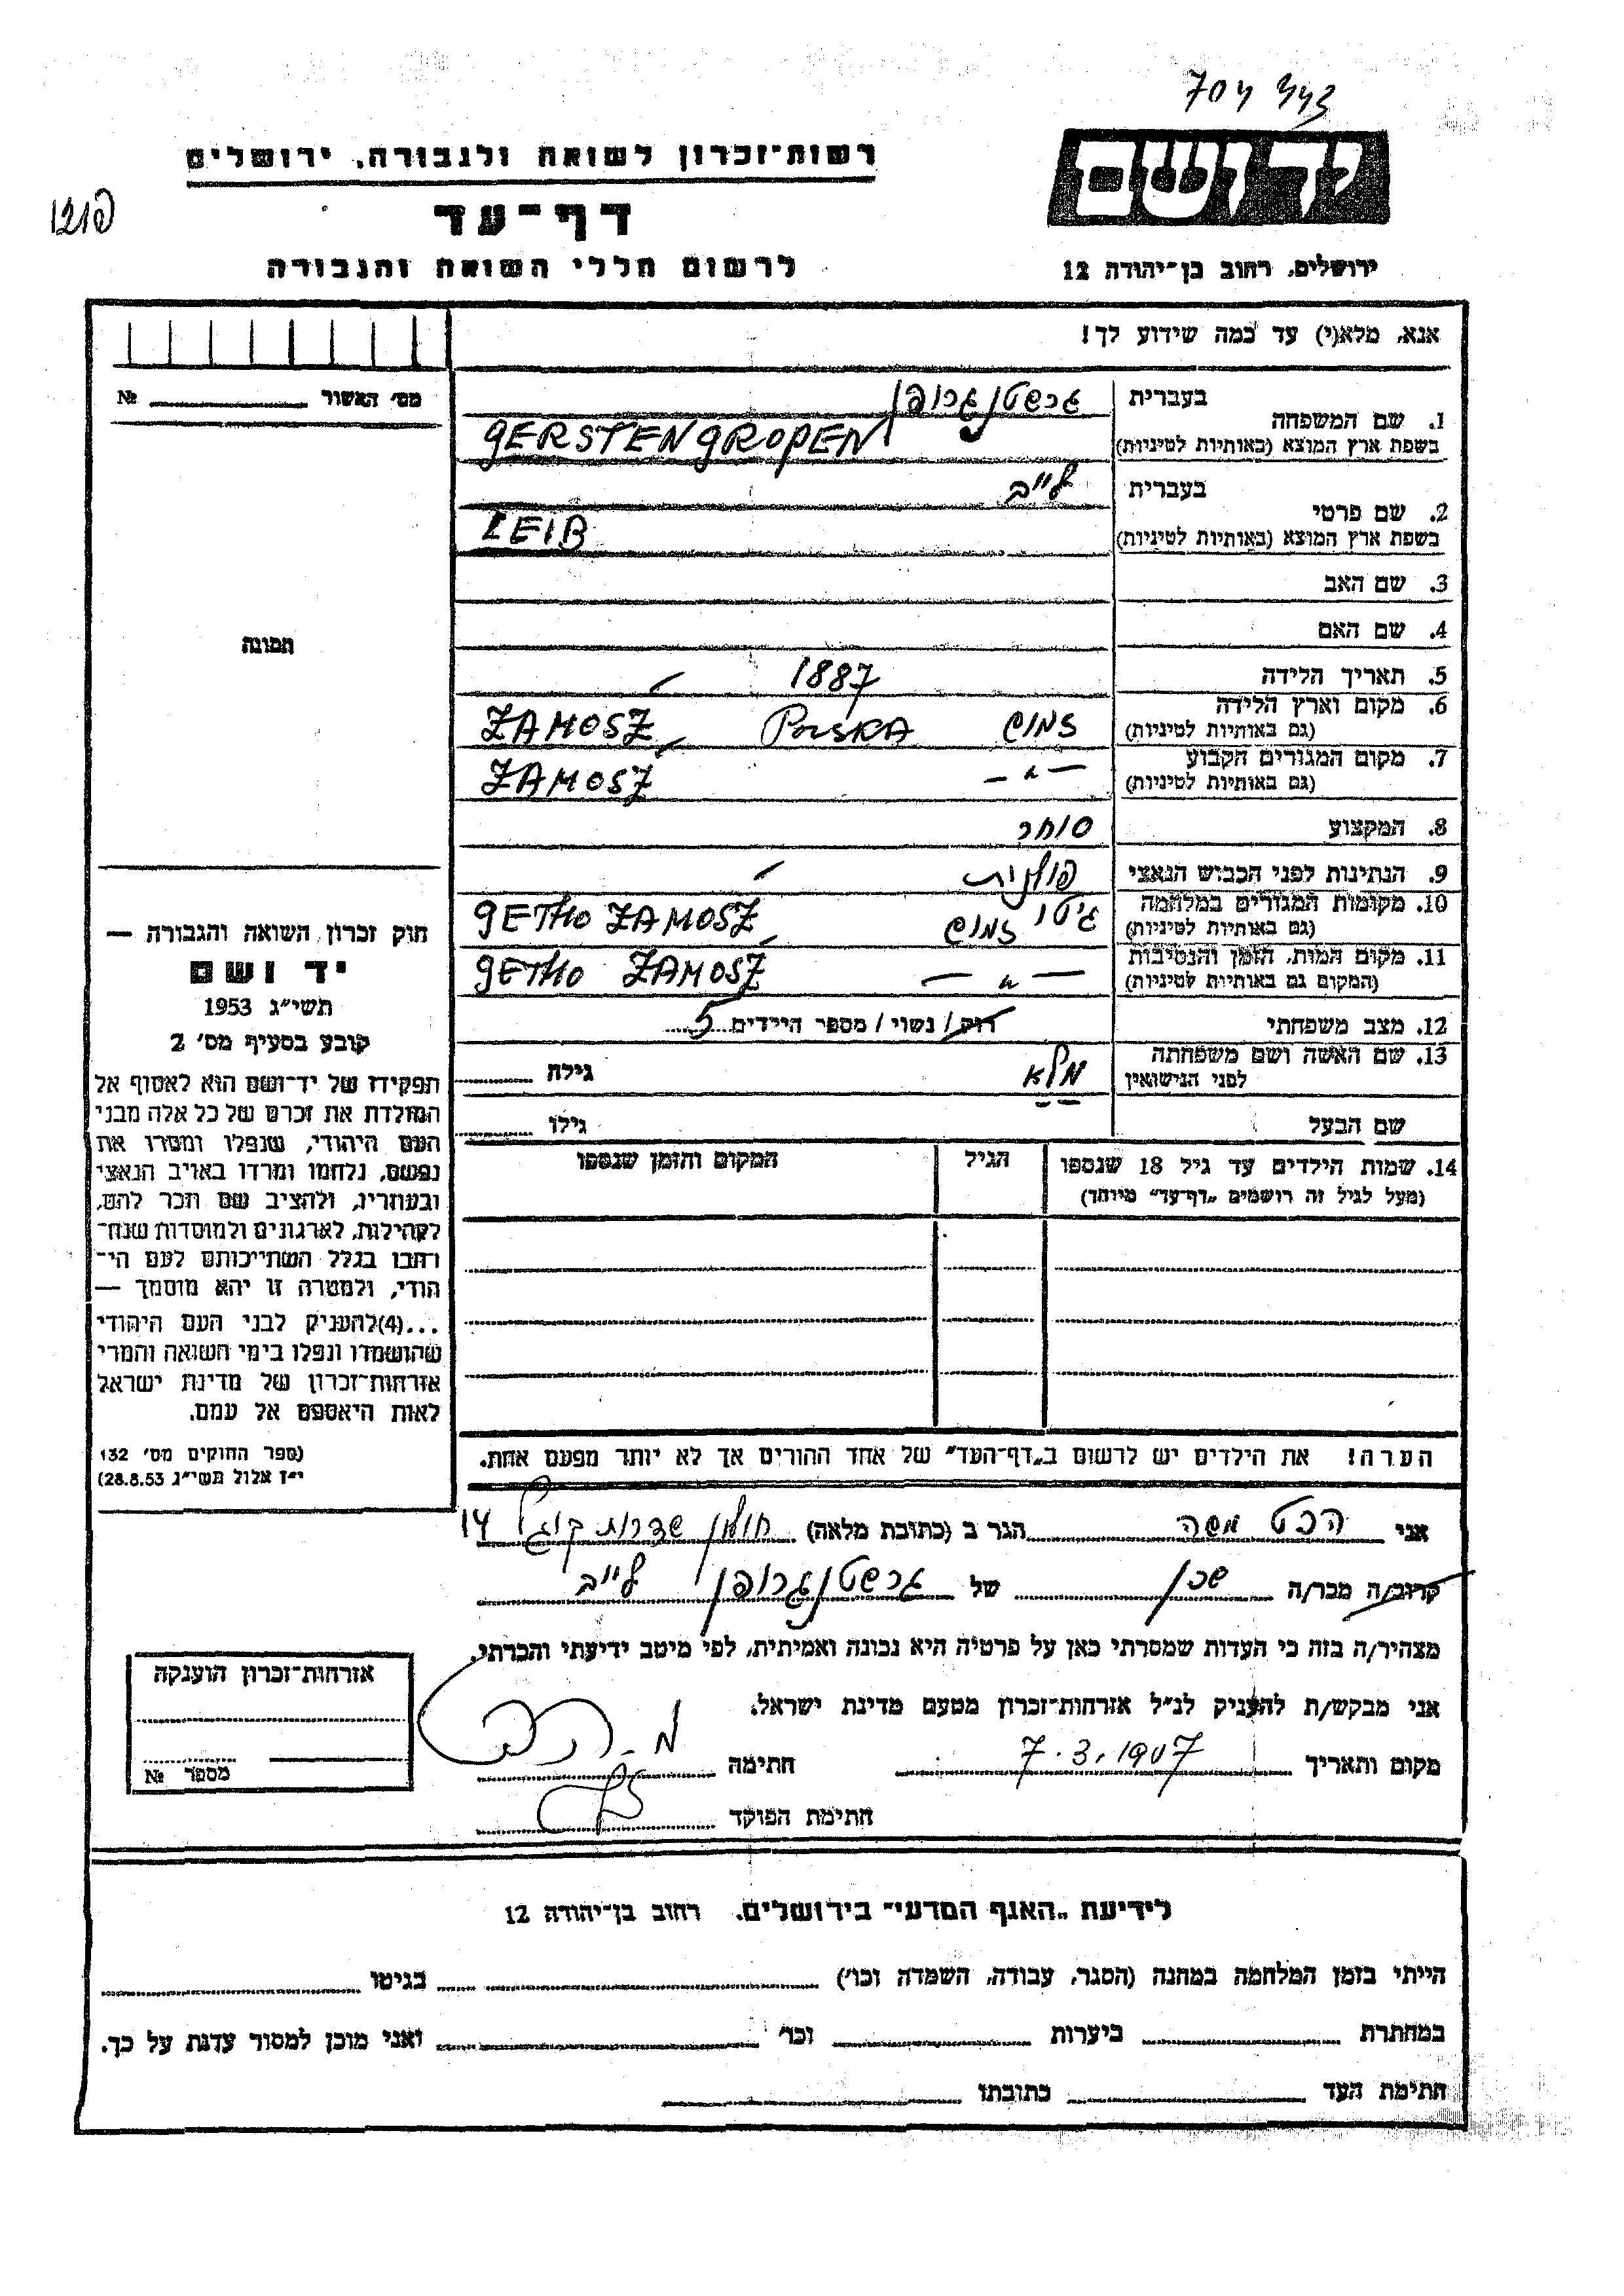 רשות־זכרון לשואה ולגבורה, ירושלים
יד ושם
דף־עד
לרשום חללי השואה והגבורה
ירושלים, רחוב בן־יהודה 12
אנא, מלא(י) עד כמה שידוע לך!
מס׳ האשור № 
1. שם המשפחה בעברית גרשטנגרופן
בשפת ארץ המוצא (באותיות לטיניות) GERSTENGROPEN
2. שם פרטי בעברית לייב
בשפת ארץ המוצא (באותיות לטיניות) LEIB
3. שם האב
4. שם האם
תמונה
5. תאריך הלידה 1887
6. מקום וארץ הלידה זמושץ POLSKA ZAMOSZ
(גם באותיות לטיניות)
7. מקום המגורים הקבוע — " — ZAMOSZ
(גם באותיות לטיניות)
8. המקצוע סוחר
9. הנתינות לפני הכבוש הנאצי פולנית
10. מקומות המגורים במלחמה גיטו זמושץ GETHO ZAMOSZ
(גם באותיות לטיניות)
11. מקום המות, הזמן והנסיבות — " — GETHO ZAMOSZ
(המקום גם באותיות לטיניות)
12. מצב משפחתי רוק/ נשוי / מספר הילדים 5
13. שם האשה ושם משפחתה מלא גילה
לפני הנישואין
שם הבעל גילו
14. שמות הילדים עד גיל 18 שנספו הגיל המקום והזמן שנספו
(מעל לגיל זה רושמים „דף־עד״ מיוחד)
חוק זכרון השואה והגבורה —
יד ושם
תשי״ג 1953
קובע בסעיף מס׳ 2
תפקידו של יד־ושם הוא לאסוף אל
המולדת את זכרם של כל אלה מבני
העם היהודי, שנפלו ומסרו את
נפשם, נלחמו ומרדו באויב הנאצי
ובעוזריו, ולהציב שם וזכר להם,
לקהילות, לארגונים ולמוסדות שנח־
רבו בגלל השתייכותם לעם הי־
הודי, ולמטרה זו יהא מוסמך —
...(4) להעניק לבני העם היהודי
שהושמדו ונפלו בימי השואה והמרי
אזרחות־זכרון של מדינת ישראל
לאות היאספם אל עמם.
(ספר החוקים מס׳ 132
י״ז אלול תשי״ג 28.8.53)
הערה! את הילדים יש לרשום ב„דף־העד״ של אחד ההורים אך לא יותר מפעם אחת.
אני הכט משה הגר ב (כתובת מלאה) חולון שדרות קוגל 14
קרוב/ה מכר/ה שכן של גרשטנגרופן לייב
מצהיר/ה בזה כי העדות שמסרתי כאן על פרטיה היא נכונה ואמיתית, לפי מיטב ידיעתי והכרתי.
אני מבקש/ת להעניק לנ״ל אזרחות־זכרון מטעם מדינת ישראל.
מקום ותאריך 7.3.1907 חתימה
חתימת הפוקד
אזרחות־זכרון הוענקה
מספר №
לידיעת „האגף המדעי״ בירושלים, רחוב בן־יהודה 12
הייתי בזמן המלחמה במחנה (הסגר, עבודה, השמדה וכו׳) בגיטו
במחתרת ביערות וכו׳ ואני מוכן למסור עדות על כך.
חתימת העד כתובתו